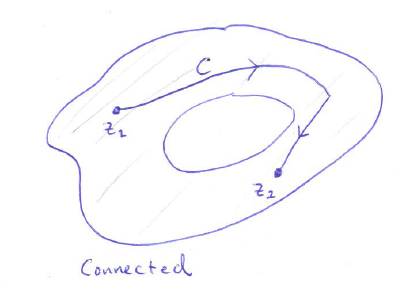 C
z₁
z₂
Connected